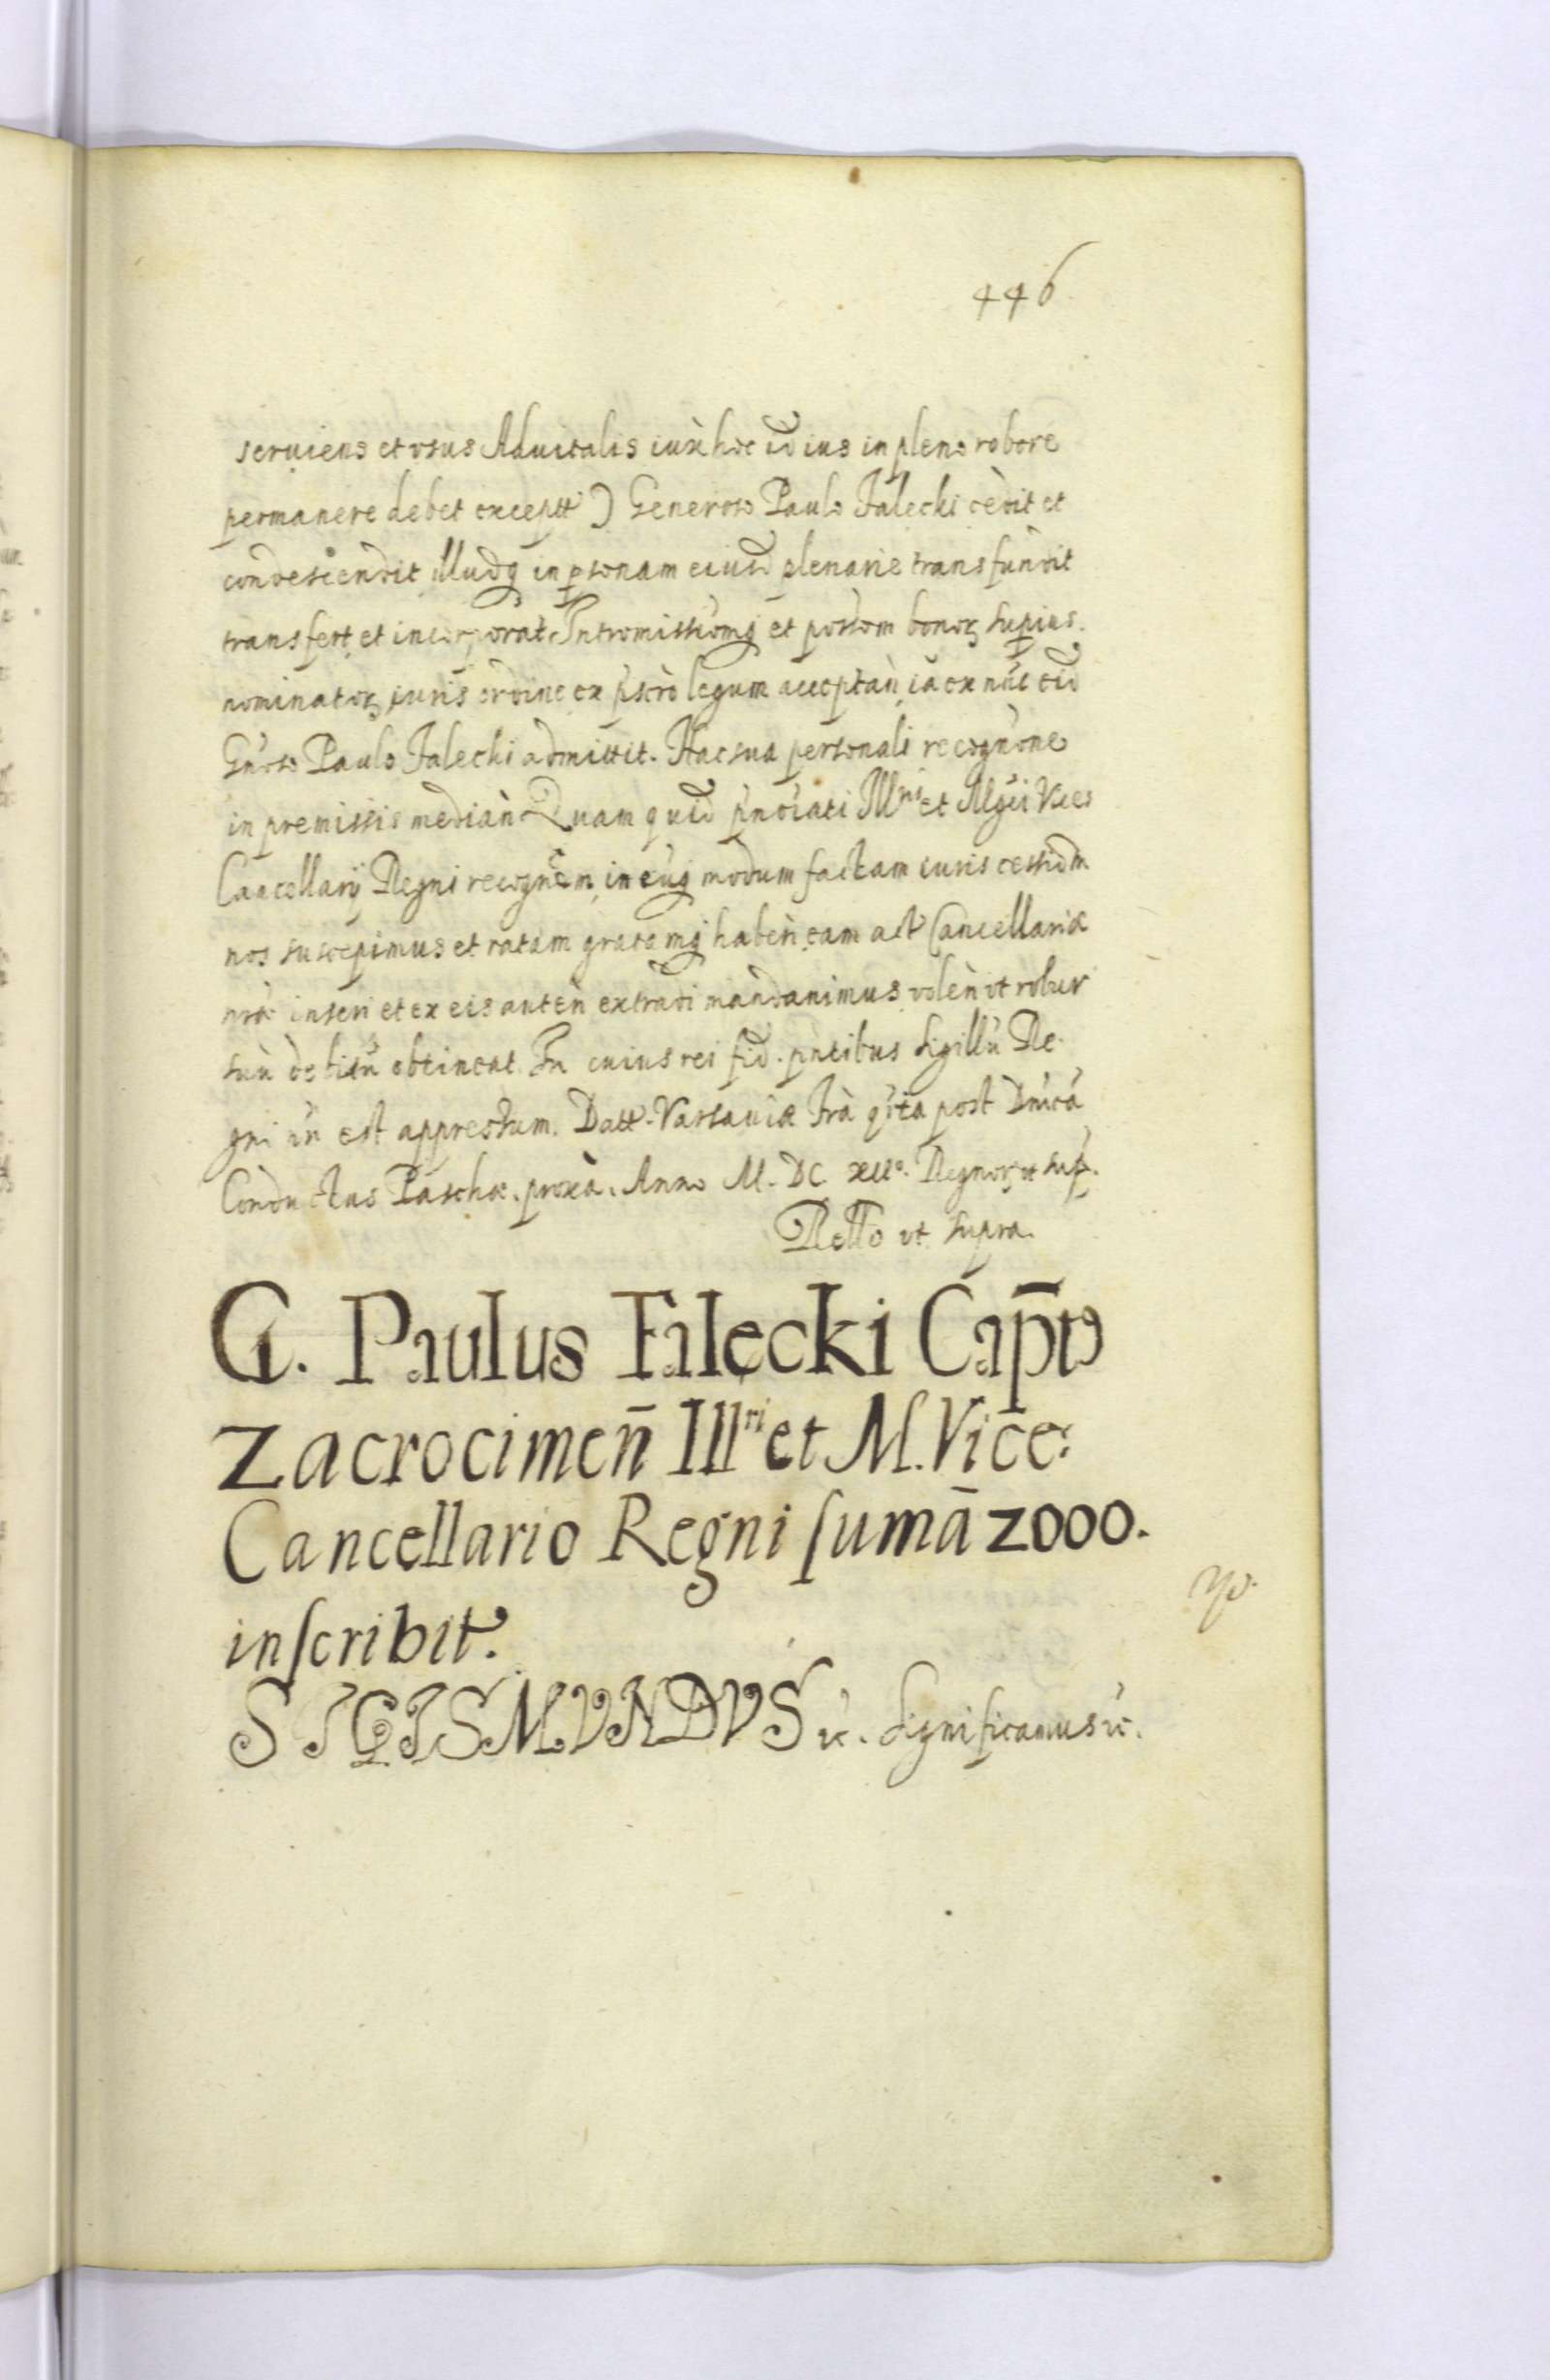 446
seruiens et usus Aduitalis iux hoc id ius in pleno robore
permanere debet exceptt) Generoso Paulo Falecki cedit et
condescendit, illudq in psonam eiusd plenarie transfundit
transfert et incorporat. Intromissiomq et possom bonoꝝ supius
nominatoꝝ, iuris ordine ex pscrò legum acceptàn ià ex nùc eid
Gnoso Paulo Falecki admittit. Hac sua personali recognone
in premissis mediàn Quam quid pnoiati Illris et Mgci Vices
Cancellarij Regni recognem, in euq modum factam iuris cessiom
nos suscepimus et ratam gratamq habèn, eam act Cancellariæ
nræ inseri et ex eis autèn extradi mandauimus, volèn ut robur
suù debitù obtineat. In cuius rei fid. pntibus Sigillù Re-
gni nn est appressum. Datt. Varsauiæ Frà qrta post Dnica
Conductus Paschæ. proxà. Anno M. DC XIIo. Regnoꝝ ut sup.
Rello ut supra.
G. Paulus Falecki Cap̄ts
Zacrocimen̄ Illri et M. Vice:
Cancellario Regni ſumā 2000.
inſcribit.
SIGISMVNDVS ꝛc. Significamus ꝛc.